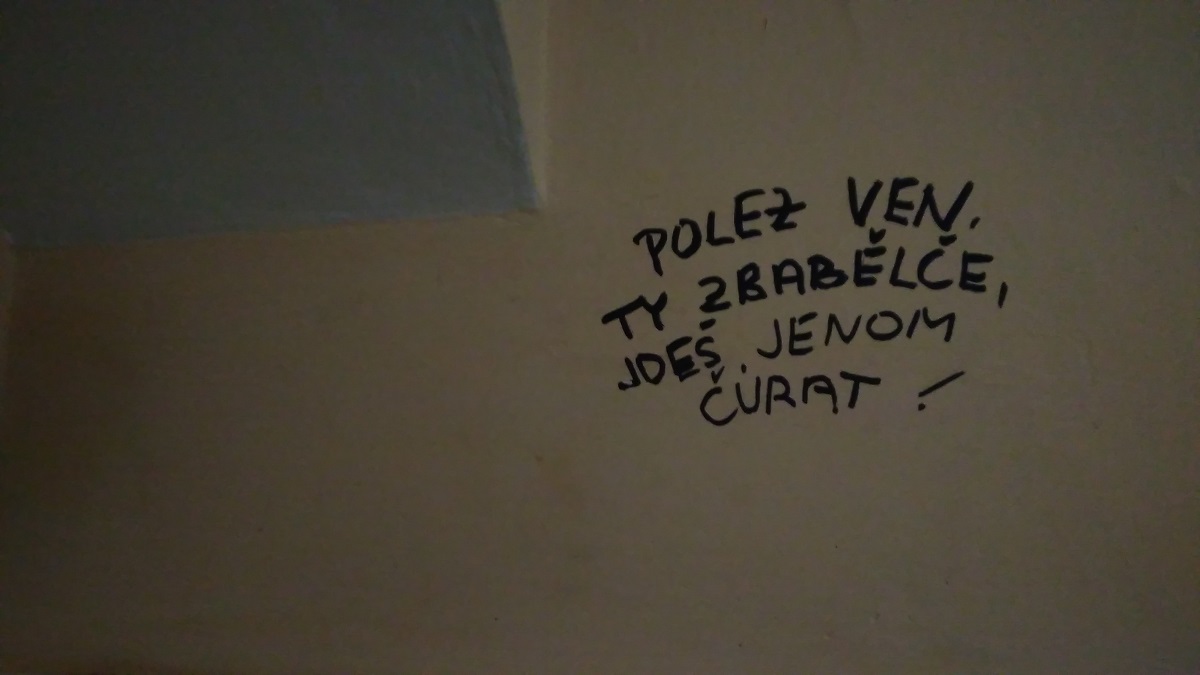 POLEZ VEN,
TY ZBABĚLČE,
JDEŠ JENOM
ČURAT!